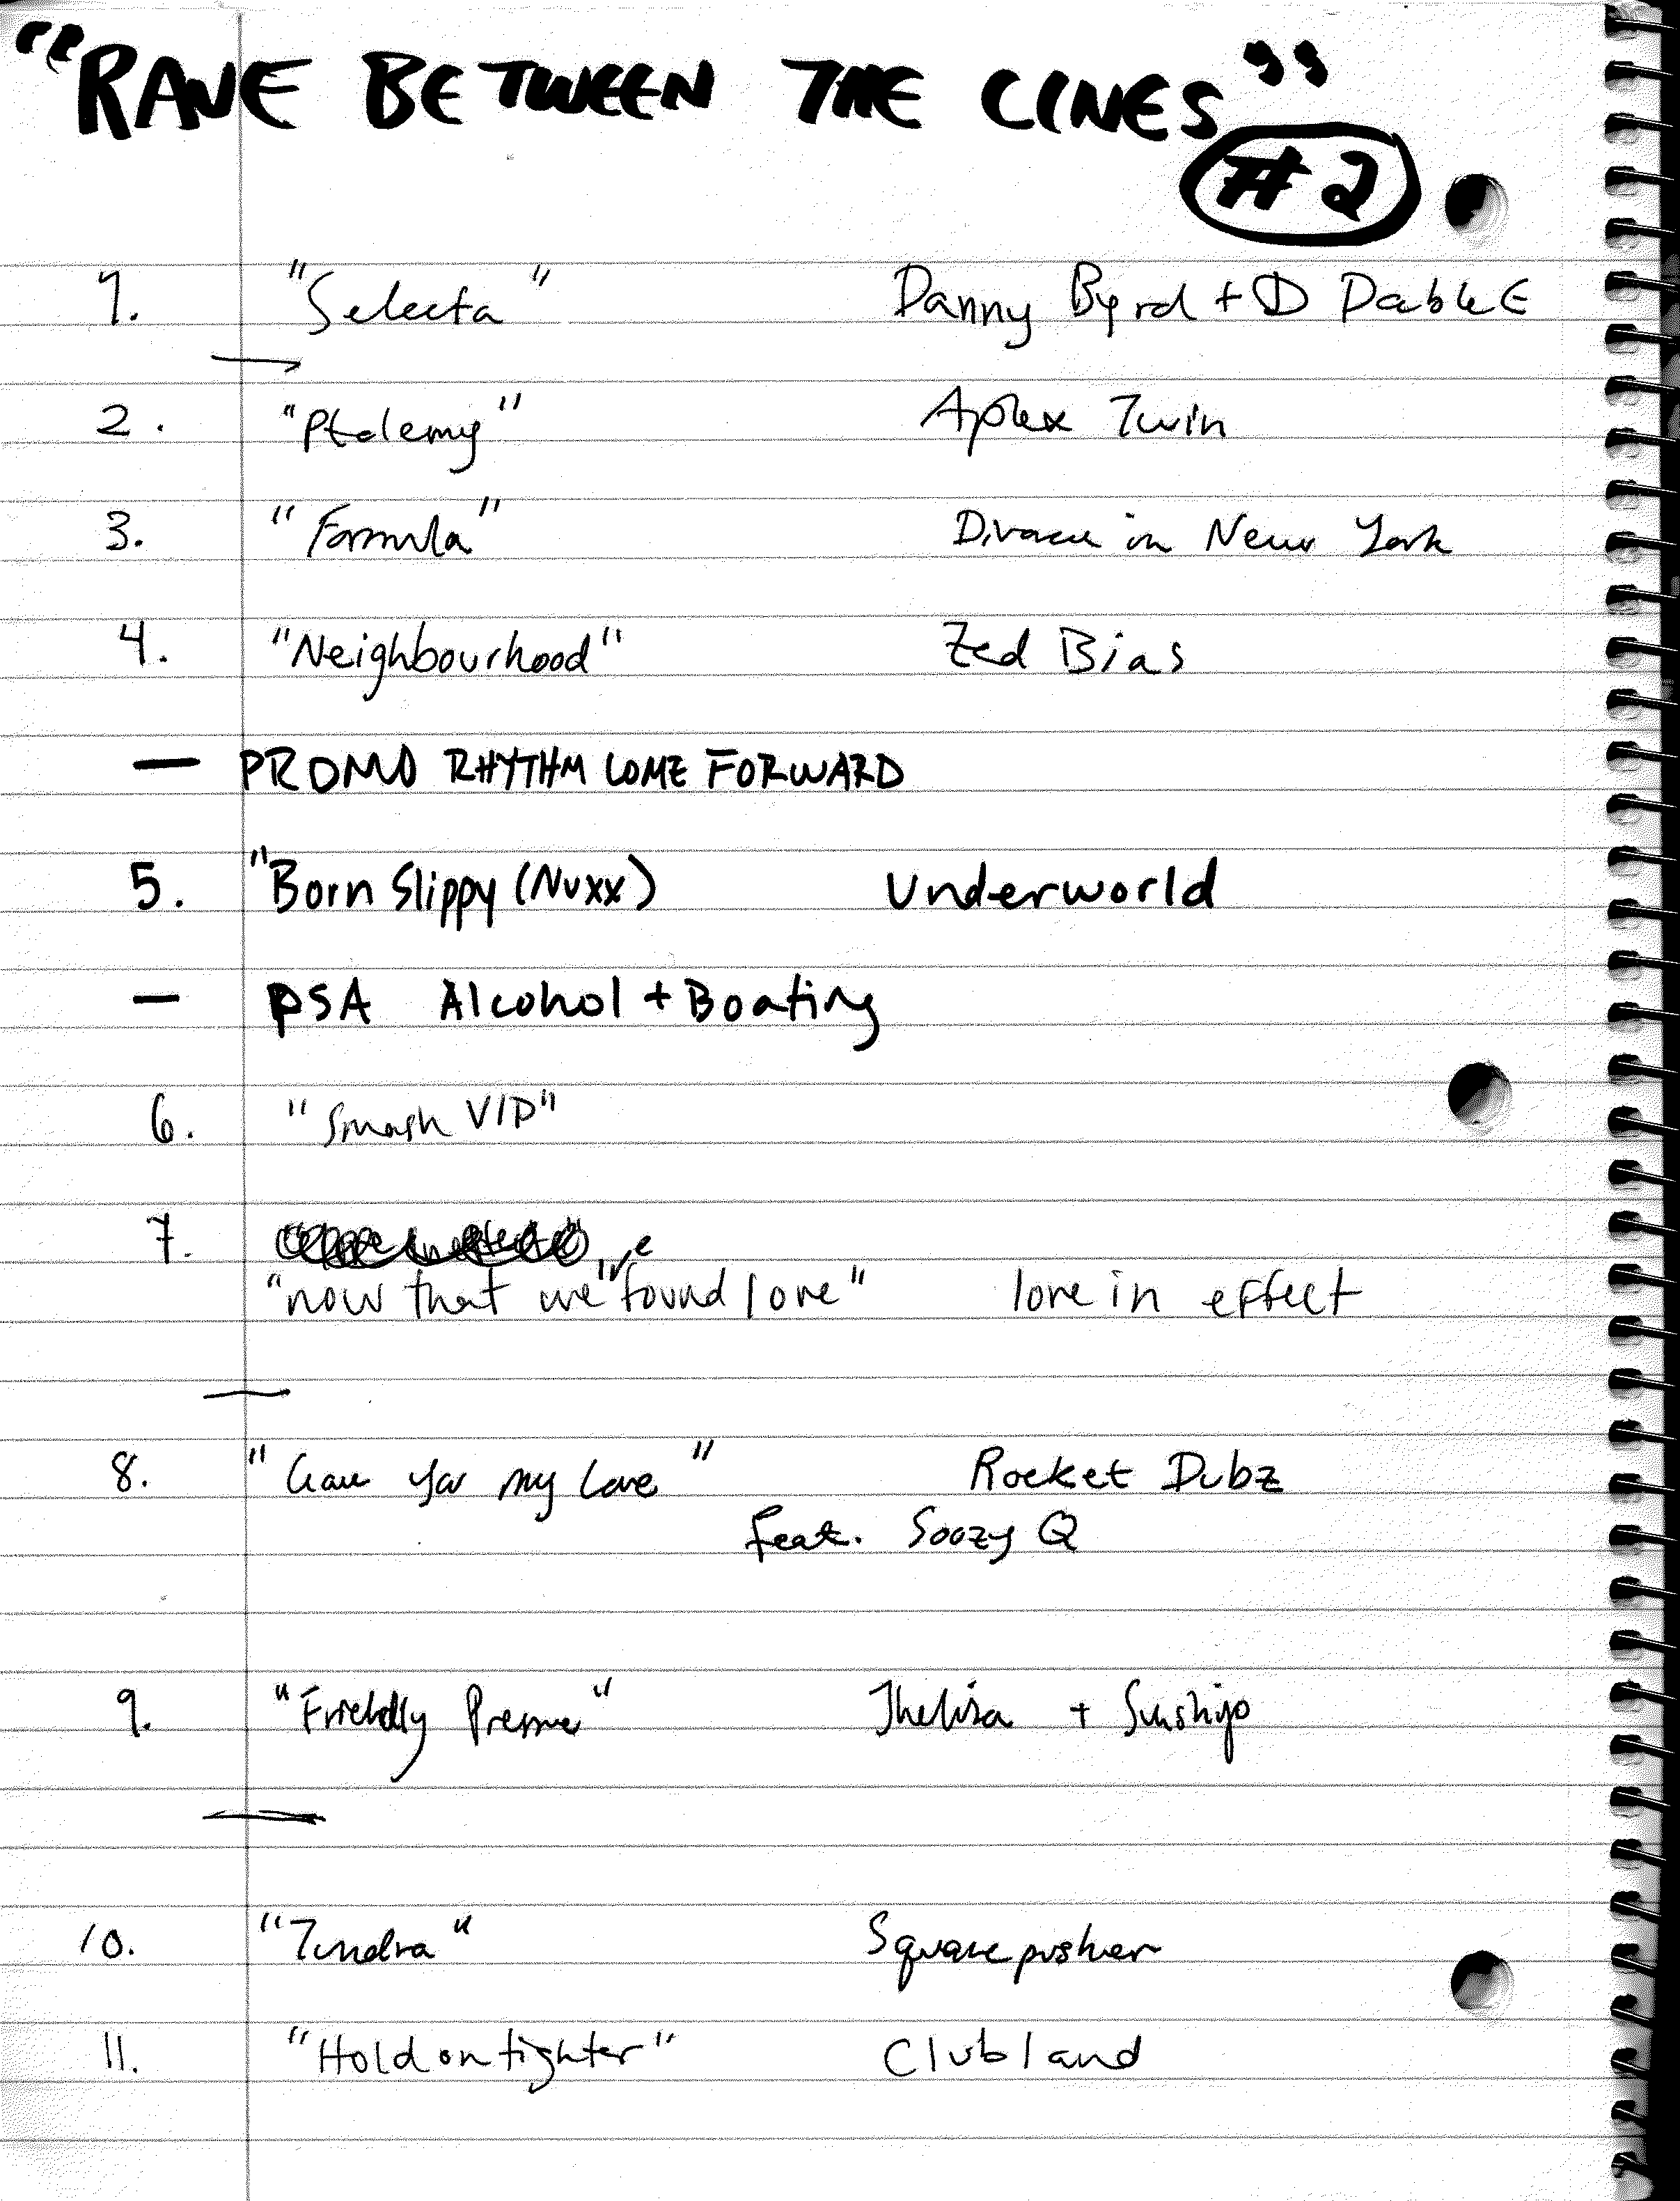 "RAVE BETWEEN THE LINES"
#2
1. "Selecta" Danny Byrd + D Double E
2. "Ptolemy" Aphex Twin
3. "Formula" Divorce in New York
4. "Neighbourhood" Zed Bias
— PROMO RHYTHM COME FORWARD
5. "Born Slippy (Nuxx) Underworld
— PSA Alcohol + Boating
6. "Smash VIP"
7.
've
"now that we found love" love in effect
8. "Gave You my Love" Rocket Dubz
feat. Soozy Q
9. "Friendly Pressure" Jhelisa + Sunship
10. "Tundra" Squarepusher
11. "Hold on tighter" Clubland